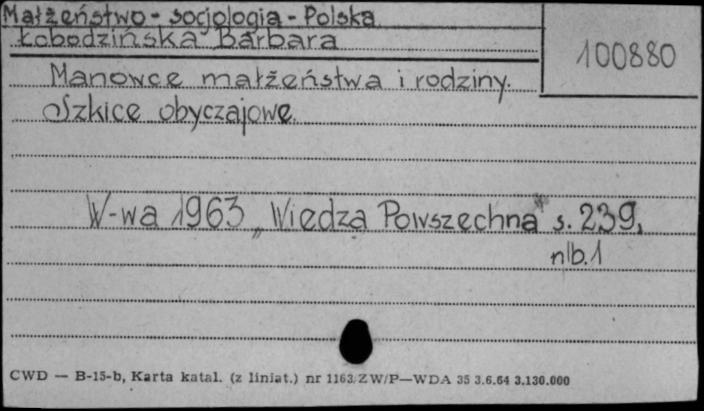 Małżeństwo - socjologia - Polska
Łobodzińska Barbara
100880
Manowce małżeństwa i rodziny.
Szkice obyczajowe.
W-wa 1963 „Wiedza Powszechna" s. 239,
nlb. 1
CWD — B-15-b, Karta katal. (z liniat.) nr 1163/ZW/P—WDA 35 3.6.64 3.130.000